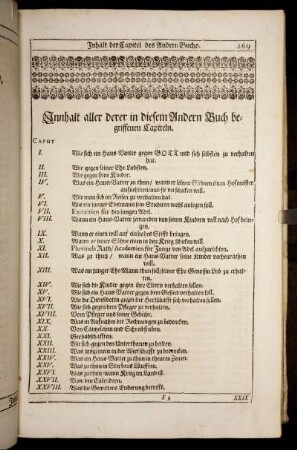 Inhalt der Capitel des Andern Buchs. 269
Innhalt aller derer in diesem Andern Buch be-
griffenen Capiteln.
CAPUT
I. Wie sich ein Haus-Vatter gegen GOTT und sich selbsten zu verhalten
hat.
II. Wie gegen seiner Ehe-Liebsten.
III. Wie gegen seine Kinder.
IV. Was ein Haus-Vatter zu thun / wann er seinen Söhnen einen Hofmeister
V. Wie man sich im Reisen zu verhalten.
VI. Wie ein junger Edelmann sein Studiren wohl anlegen soll.
VII. Exercitien für die jungen Adel.
VIII. Wann ein Haus-Vatter jemanden von seinen Kindern will nach Hof brin-
gen.
IX. Wann er einen will auf ein hohes Stifft bringen.
X. Wann er seiner Söhne einen in den Krieg schicken will.
XI. Vorschlag Academien für Junge von Adel aufzurichten.
XII. Was zu thun / wann ein Haus-Vatter seine Kinder verheurathen
will.
XIII. Was ein junger Ehe-Mann thun soll seiner Ehe-Genossin Lieb zu erhal-
ten.
XIV. Wie sich die Kinder gegen ihre Eltern verhalten sollen.
XV. Wie sich ein Haus-Vatter gegen dem Gesinde verhalten soll.
XVI. Wie die Dienstboten gegen der Herrschafft sich verhalten sollen.
XVII. Wie sich gegen dem Pfleger zu verhalten.
XVIII. Vom Pfleger und seiner Gebühr.
XIX. Was in Aufnehmen der Rechnungen zu bedencken.
XX. Von Cantzleyen und Schreibstuben.
XXI.
XXII. Wie sich gegen den Unterthanen zu halten.
XXIII. Was insgemein in der Wirthschafft zu bedencken.
XXIV. Was ein Haus-Vatter zu thun in theuren Zeiten.
XXV. Was zu thun in Sterbens-Läufften.
XXVI. Was zu thun wann Krieg im Land ist.
XXVII. Von den Calendern.
XXVIII. Was die Gewitters Enderung betrifft.
XXIX